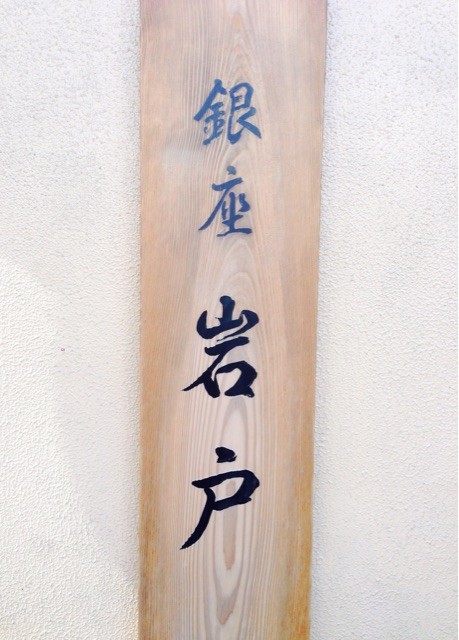 銀座
岩戸